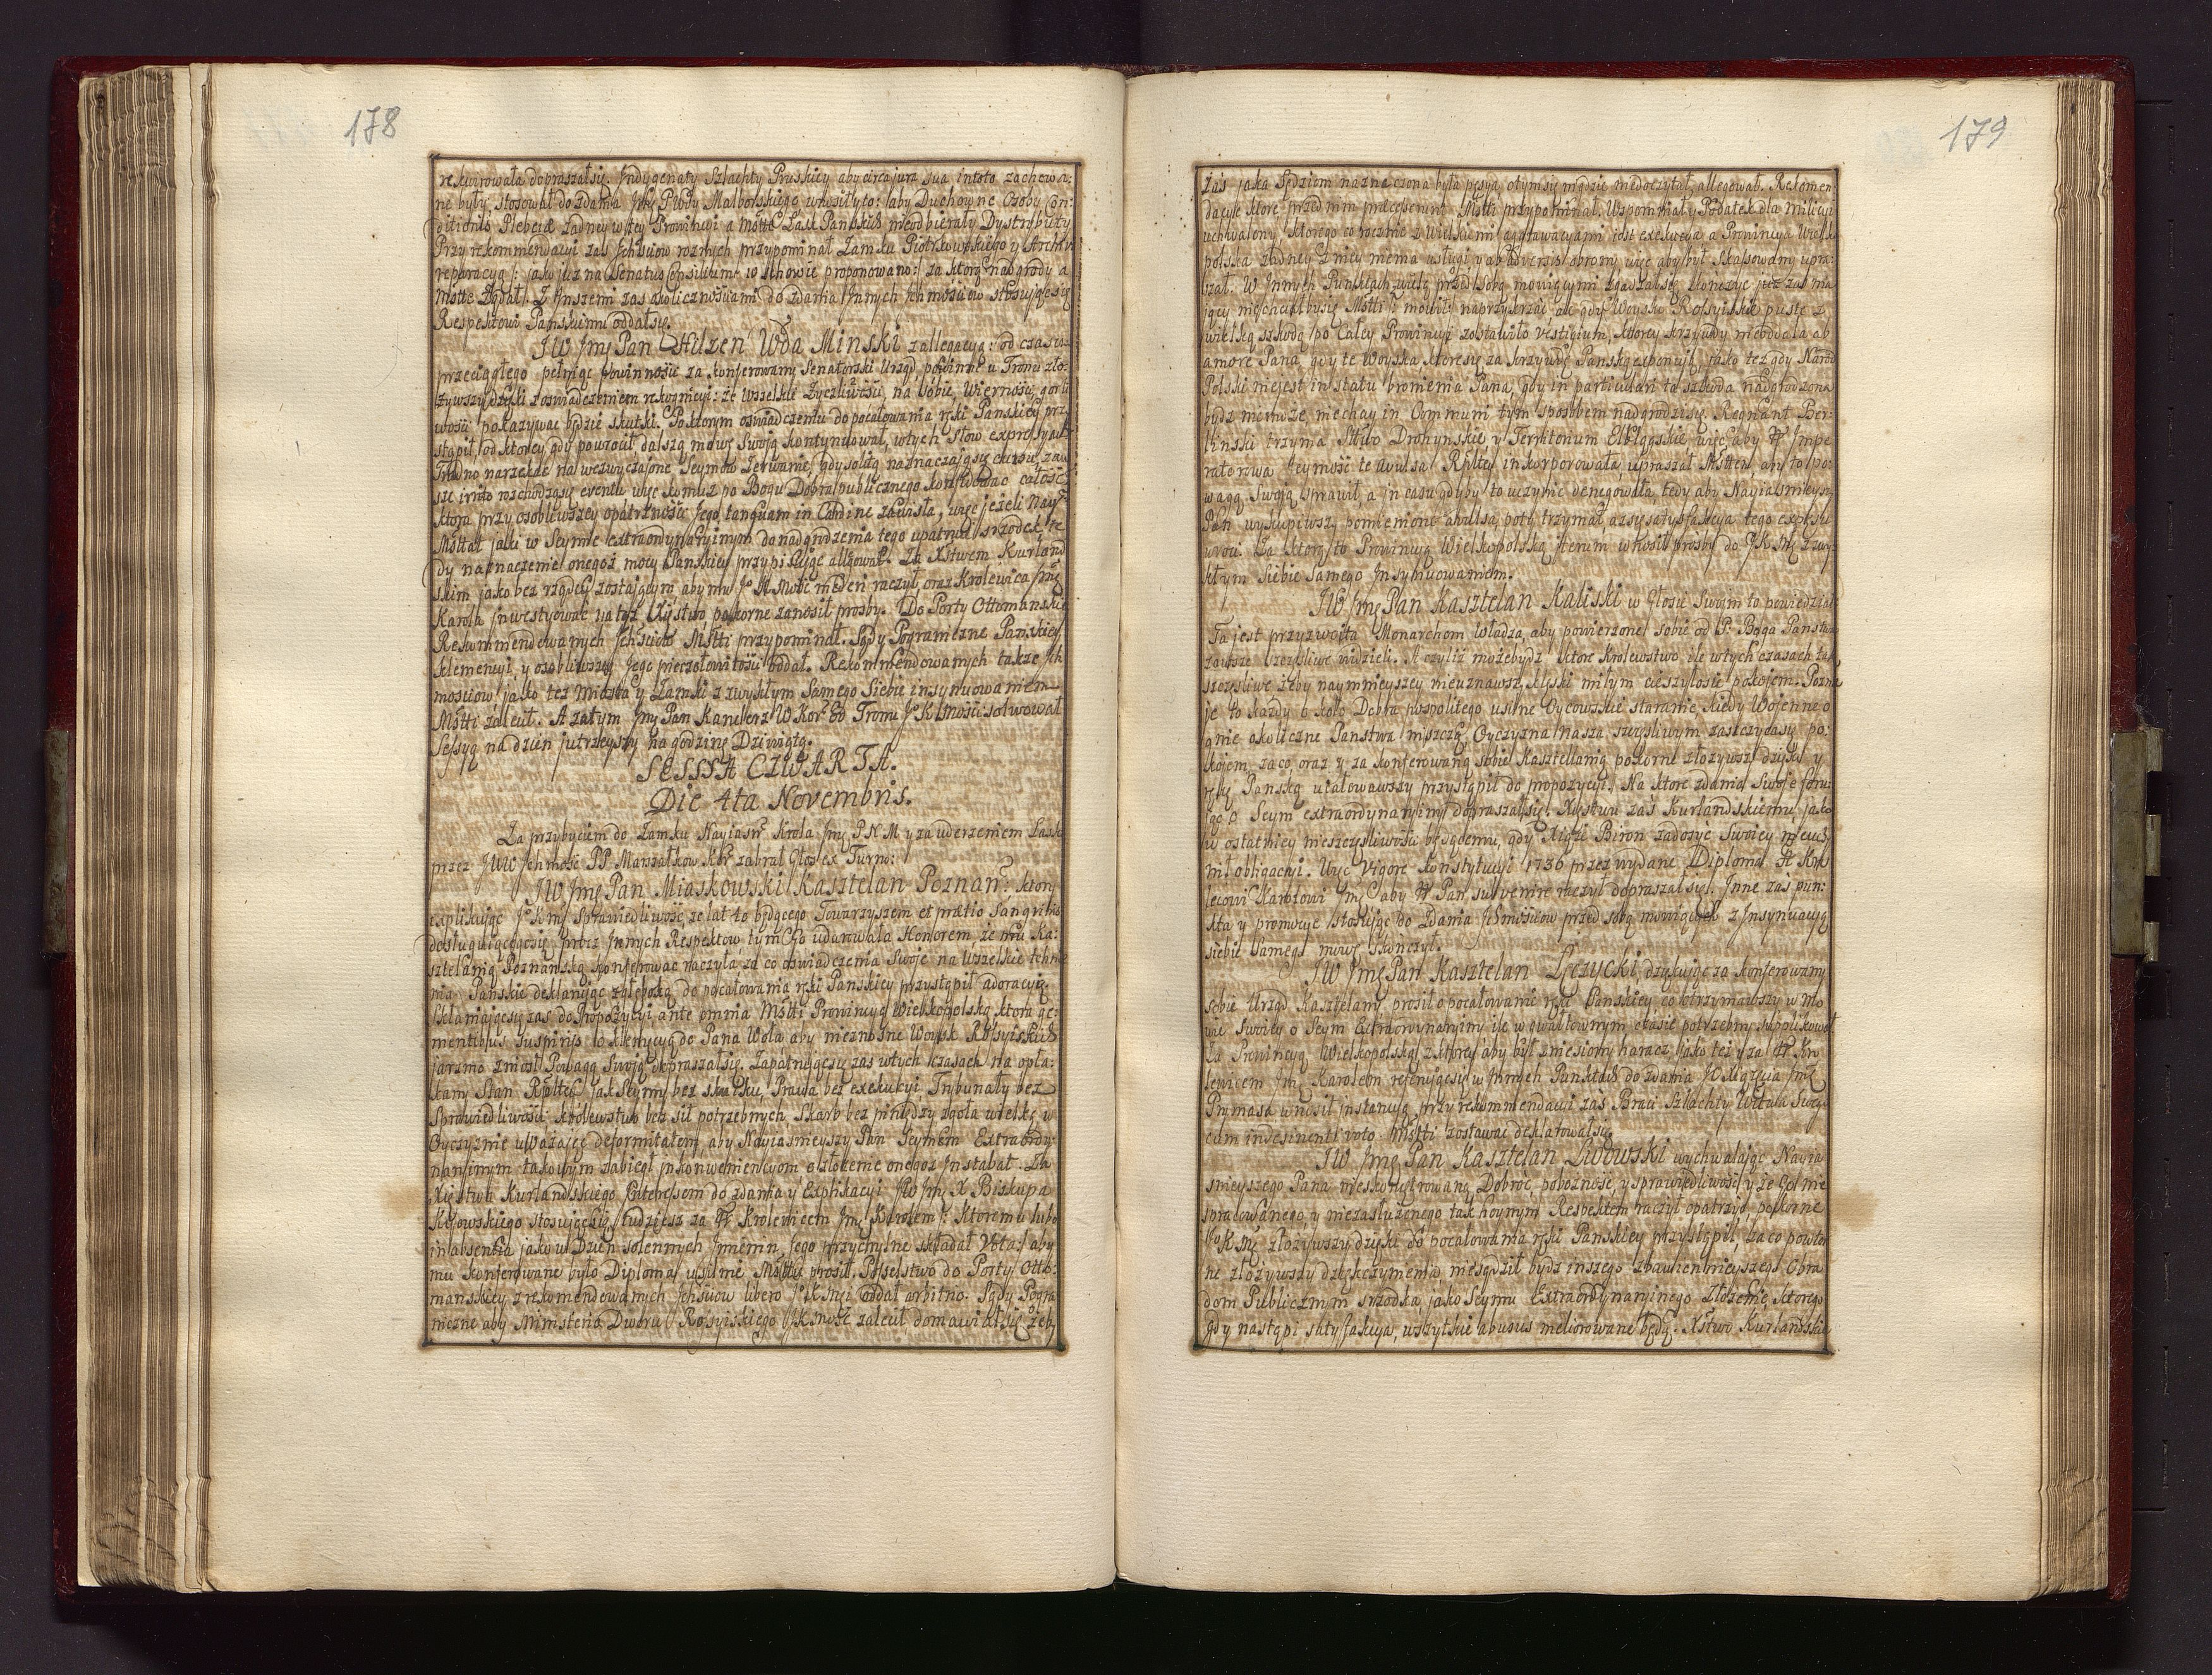 178
rekwirowała dopraszał się. Indygenaty Szlachty Pruskiey aby circa jura sua in toto zachowa:
ne były, stosował do zdania Pwdy Malborskiego wnosił y to: aby Duchowne Osoby Con:
ditionis Plebeiæ żadney w tey Prowincyi a Łask Pańskich nie odbierały Dystrybuty
Przy rekommendacyi zaś Ichmściow rożnych przypominał Zamku Piotrkowskiego y Archiv
reparacyą /: jako już na Senatus Consilium w Wschowie proponowano :/ za ktorą nadgrody a
żądał. Z Inszemi zaś okolicznościami do zdania Innych Ichmościow stosując się
Respektowi Pańskiemu oddał się.
JW Jmę Pan Hilzen Wda Minski z allegacyą: od czasu
przeciągłego pełniąc powinność za konferowany Senatorski Urząd powinne u Tronu zło:
żywszy dzięki z oswiadczeniem rekognicyi: że wszelkie życzliwości, na sobie, Wierności, gorli
wości pokazywać będzie skutki. Po ktorym oswiadczeniu do pocałowania ręki Pańskiey przy
stąpił, od ktorey gdy powrocił dalszą mowę Swoją kontynuował, w tych słow expressyach
Trudno narzekać na wezwyczajone Seymow Zerwanie, gdy solitą naznaczają się
rozchodzą się eventu więc komuż po Bogu Dobra publicznego konsydować całość
ktora przy osobliwszey opatrzności Jego tanquam in Cardine zawisła, więc jeżeli Nay
jaki w Seymie extraordynaryinym do nadgrodzenia tego upatrual srzodek te
dy naznaczenie onegoż mocy Pańskiey przypisując allegował. Za Xstwem Kurland
skim jako bez rządcy zostającym aby mu raczył, oraz Krolewica Jmę
Karola Inwestyować na toż Xięstwo pokorne zanosił prosby. Do Porty Ottomańskiey
Rekommendowanych Ichściow przypominał. Sądy Pograniczne Pańskiey
klemencyi, y osobliwszey Jego pieczołowitości oddał. Rekommendowanych także Ich
mościow, jako też Miasta y Zamki z zwykłym Samego Siebie insynuowaniem
zalecił. A zatym Jmę Pan Kanclerz W Kor. od Tronu J. K. Mości solwował
Sessyą na dzien jutrzeyszy na godzinę Dziewiątą.
SESSYA CZWARTA.
Die 4ta Novembris.
Za przybyciem do Zamku Nayiasn. Krola Jmę P N M y za uderzeniem Lask
przez JWW Ichmość PP Marszałkow zabrał Głos ex Turno:
JW Jmę Pan Miaskowski Kasztelan Poznan: ktory
explikując J. K. mę Sprawiedliwość, ze lat to będącego Towarzyszem et prætio Sangvinis
dosługującego się, przez Innych Respektow tym Go udarowała Honorem, że mu Ka:
sztelanią Poznańską konferować raczyła, za co oświadczenia Swoje na wszelkie tchnie
nia Pańskie deklarując z głęboką do pocałowania ręki Pańskiey przystąpił adoracyą.
Skłaniając się zaś do Propozycyi ante omnia Prowincyą Wielkopolską ktora ge:
mentibus suspiriis o klemencyą do Pana Woła aby nieznosne Woysk Rossyiskich
jarzmo zniosł Powagą Swoją dopraszał się. Zapatrując się zaś w tych czasach na opła:
kany Stan Rpltey jak Seymy bez skutku, Prawa bez exekucyi, Trybunały bez
Sprawiedliwości krolewstwo bez sił potrzebnych, Skarb bez pieniędzy zgoła wielką w
Oyczyznie uważając deformitatem, aby Nayiasnieyszy Pan Seymem Extraordy:
naryinym takowym zabiegł inkonweniencyom o złożenie onegoż Instabat. Za
Xięstwa Kurlandskiego Interessem do zdania y Explikacyi JW Jmę X Biskupa
Kijowskiego stosując się, tudziesz za Krolewicem Jmę Karolem /: Ktoremu lubo
in absentia jako w Dzien solennych Imienin, Jego przychylne składał Vota :/ aby
mu konferowane było Diploma usilnie prosił. Posselstwo do Porty Otto:
manskiey z rekomendowanych Ichściow libero J. K. Mci oddał arbitrio. Sądy Pogra
niczne aby Ministeria Dworu Rossyiskiego JK mość zalecił, domawiał się, żeby
179
zaś jaka Sędziom naznaczona była pensya, o tym się nigdzie niedoczytał, allegował. Rekomen
dacye ktore przed nim præcesserunt przypominał. Wspominał y Podatek dla Milicyi
uchwalony, ktorego corocznie z Wielkiemi aggrawacyami jest exekucya a Prowincya Wielko
polska żadney z niey niema usługi y ab adversis obrony, więc aby był skassowany upra:
szał. W Innych Punktach wielą przed sobą mowiącymi zgadzał się, kończyć już
jący niechciałby się naprzykrzać, ale gdy Woysko Rossyiskie puste z
wielką szkodą po Całey Prowincyi zostawiło vestigium, ktorey krzywdy nieoddala ab
amore Pana, gdy te Woyska ktore się za krzywdę Pańską exponują, jako też gdy Narod
Polski niejest in statu bronienia Pana, gdy in particulari ta szkoda nadgrodzona
bydz niemoże, niechay in Communi tym sposobem nadgrodzi się. Regnant Ber:
linski trzyma Stwo Drohynskie y Territorium Elblągskie więc aby Impe
ratorowa Jeymość te avulsa Rpltey inkorporowała upraszał aby to po:
wagą Swoją sprawił, a in casu gdyby to uczynić denegowała, tedy aby Nayiasnieyszy
Pan wykupiwszy pomienione avulsa poty trzymał aż satysfakcya tego expensu
wroci. Za ktorą to Prowincyą Wielkopolską iterum wnosił prosby do JK Mę z zwy:
kłym Siebie Samego Insynuowaniem.
JW Jmę Pan Kasztelan Kaliski w Głosie Swoim to powiedział
Ta jest przyzwoita Monarchom Władza, aby powierzone sobie od P. Boga Państwa
zawsze szczęśliwe widzieli. A czyliż możebydź ktore Krolewstwo, ile w tych czasach tak
szczęśliwe żeby naymnieyszey nieuznawszy klęski miłym cieszyłosie pokojem. Pozna
je to każdy o koło Dobra pospolitego usilne Oycowskie staranie, kiedy Wojenne o
gnie okoliczne Państwa niszczą, Oyczyzna Nasza szczęśliwym zaszczyca się po:
kojem, za co, oraz y za konferowaną sobie Kasztellanią pokorne złożywszy dzięki y
rękę Pańską ucałowawszy przystąpił do propozycyi. Na ktore zdania Swoje
o Seym extraordynaryiny dopraszał się. Xięstwu zaś Kurlandskiemu jako
w ostatniey nieszczęśliwości będącemu, gdy Xiążę Biron zadosyć Swoiey nieuczy
nił obligacyi. Więc Vigore konstytucyi 1736 przez wydane Diploma Kro
lewicowi Karolowi Jmę aby Pan subvenire raczył dopraszał się. Inne zaś pun:
kta y promocye stosując do zdania Ichmściow przed sobą mowiących z Insynuacyą
siebie samego mowę skończył.
JW Jmę Pan Kasztelan Łęczycki dziękując za konferowany
sobie Urząd Kasztelanij prosił o pocałowanie ręki Pańskiey co otrzymawszy w Mo
wie Swoiey o Seym Extraordynaryiny ile w gwałtownym czasie potrzebny supplikował
Za Prowincyą Wielkopolską z ktorey aby był zniesiony haracz, jako też y za Kro
lewicem Jmę Karolem referując się w Innych Punktach do zdania JO Xiążęcia Jmę
Prymasa wnosił instancyą, przy rekommendacyi zaś Braci Szlachty
cum indesinenti voto zostawać deklarował się.
JW Jmę Pan Kasztelan Lwowski wychwalając Nayia
snieyszego Pana Dobroć, pobożność, y sprawiedliwość, y że Go nie
spracowanego y niezasłużonego tak hoynym Respektem raczył opatrzyć, pokorne
JoK Mę złożywszy dzięki do pocałowania ręki Pańskiey przystąpił, za co powtor
ne złożywszy dziękczynienia niesądził bydź inszego zbawiennieyszego Obra
dom Publicznym srzodka, jako Seymu Extraordynaryinego Złożenie, ktorego
gdy nastąpi satysfakcya, wszytkie abusus meliorowane będą. Xstwo Kurlandskie